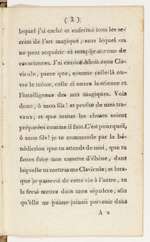 ( 2 )
lequel j'ai caché et enfermé tous les se-
crets de l'art magique ; sans lequel on
ne peut acquérir ni aucune
ces sciences. J'ai nommé cette Cla-
vicule, parce que, comme celle-là ou-
vre le trésor, celle-ci ouvre la science et
l'intelligence des arts magiques. Vois
donc, ô mon fils ! et profite de mes tra-
vaux, et que toutes les choses soient
préparées comme il faut. C'est pourquoi,
ô mon fils ! je te commande par la bé-
nédiction que tu attends de moi, que tu
fasses faire une cassette d'ébène, dans
laquelle tu mettras ma Clavicule ; et lors-
que je passerai de cette vie à l'autre, tu
la feras mettre dans mon sépulcre, afin
qu'elle ne puisse jamais parvenir dans
A 2